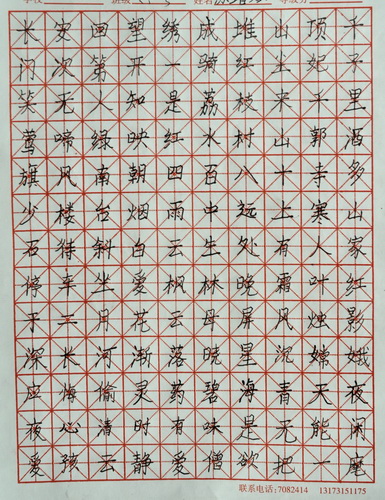 姓名
长安回望绣成堆山顶千
门次第开一骑红尘妃子
笑无人知是荔枝来千里
莺啼绿映红水村山郭酒
旗风南朝四百八十寺多
少楼台烟雨中远上寒山
石待斜白云生处有人家
停车坐爱枫林晚霜叶红
于二月花云母屏风烛影
深长河渐落晓星沉嫦娥
应悔偷灵药碧海青天夜
夜心清时有味是无能闲
爱孩云静爱僧欲把一座
联系电话:7082414 13173151175